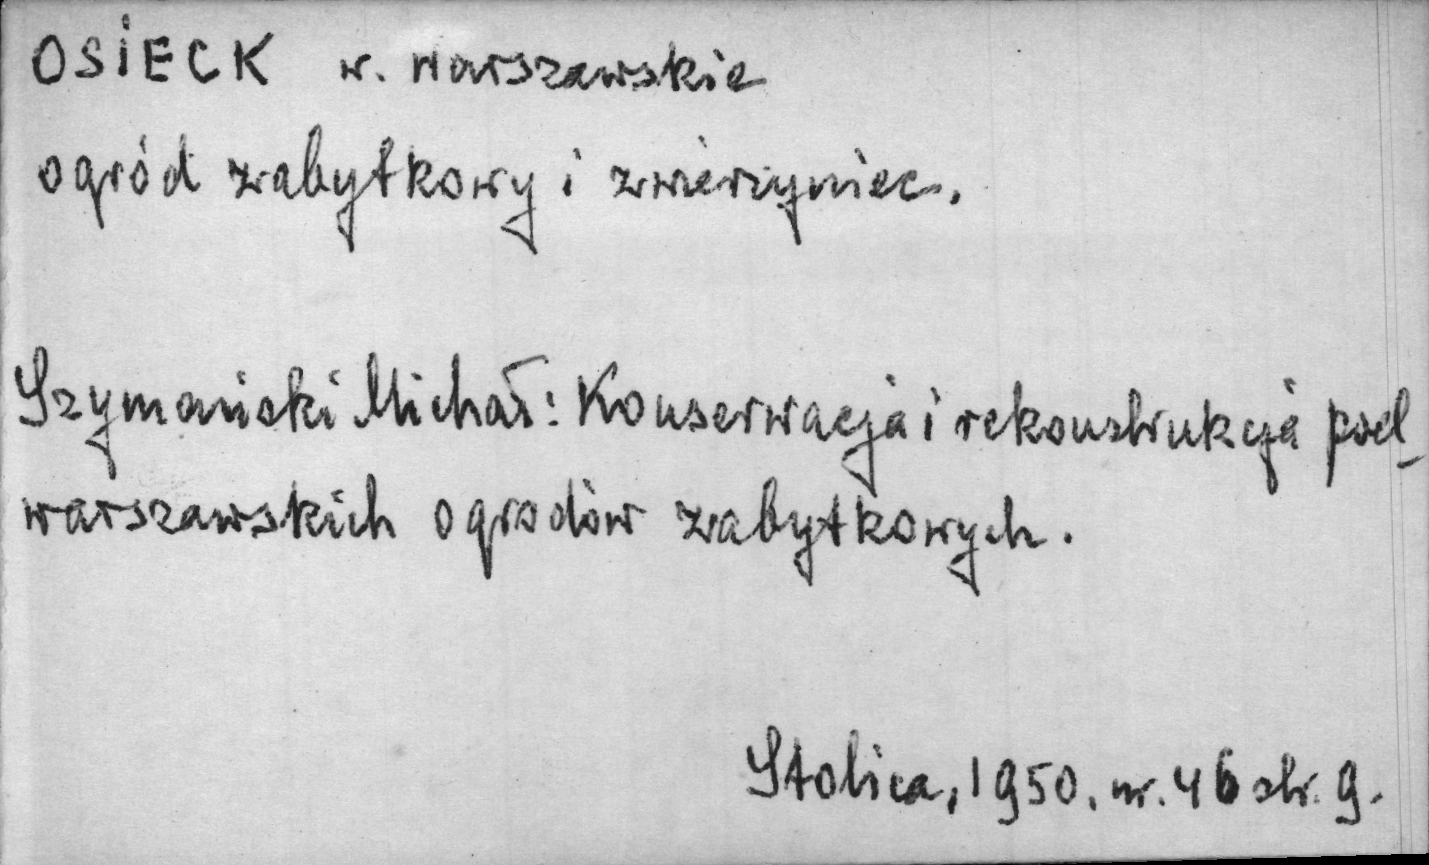 OSIECK w. warszawskie
ogród zabytkowy i zwierzyniec.
Szymański Michał: Konserwacja i rekonstrukcja pod_
warszawskich ogrodów zabytkowych.
Stolica, 1950. nr. 46 str. 9.